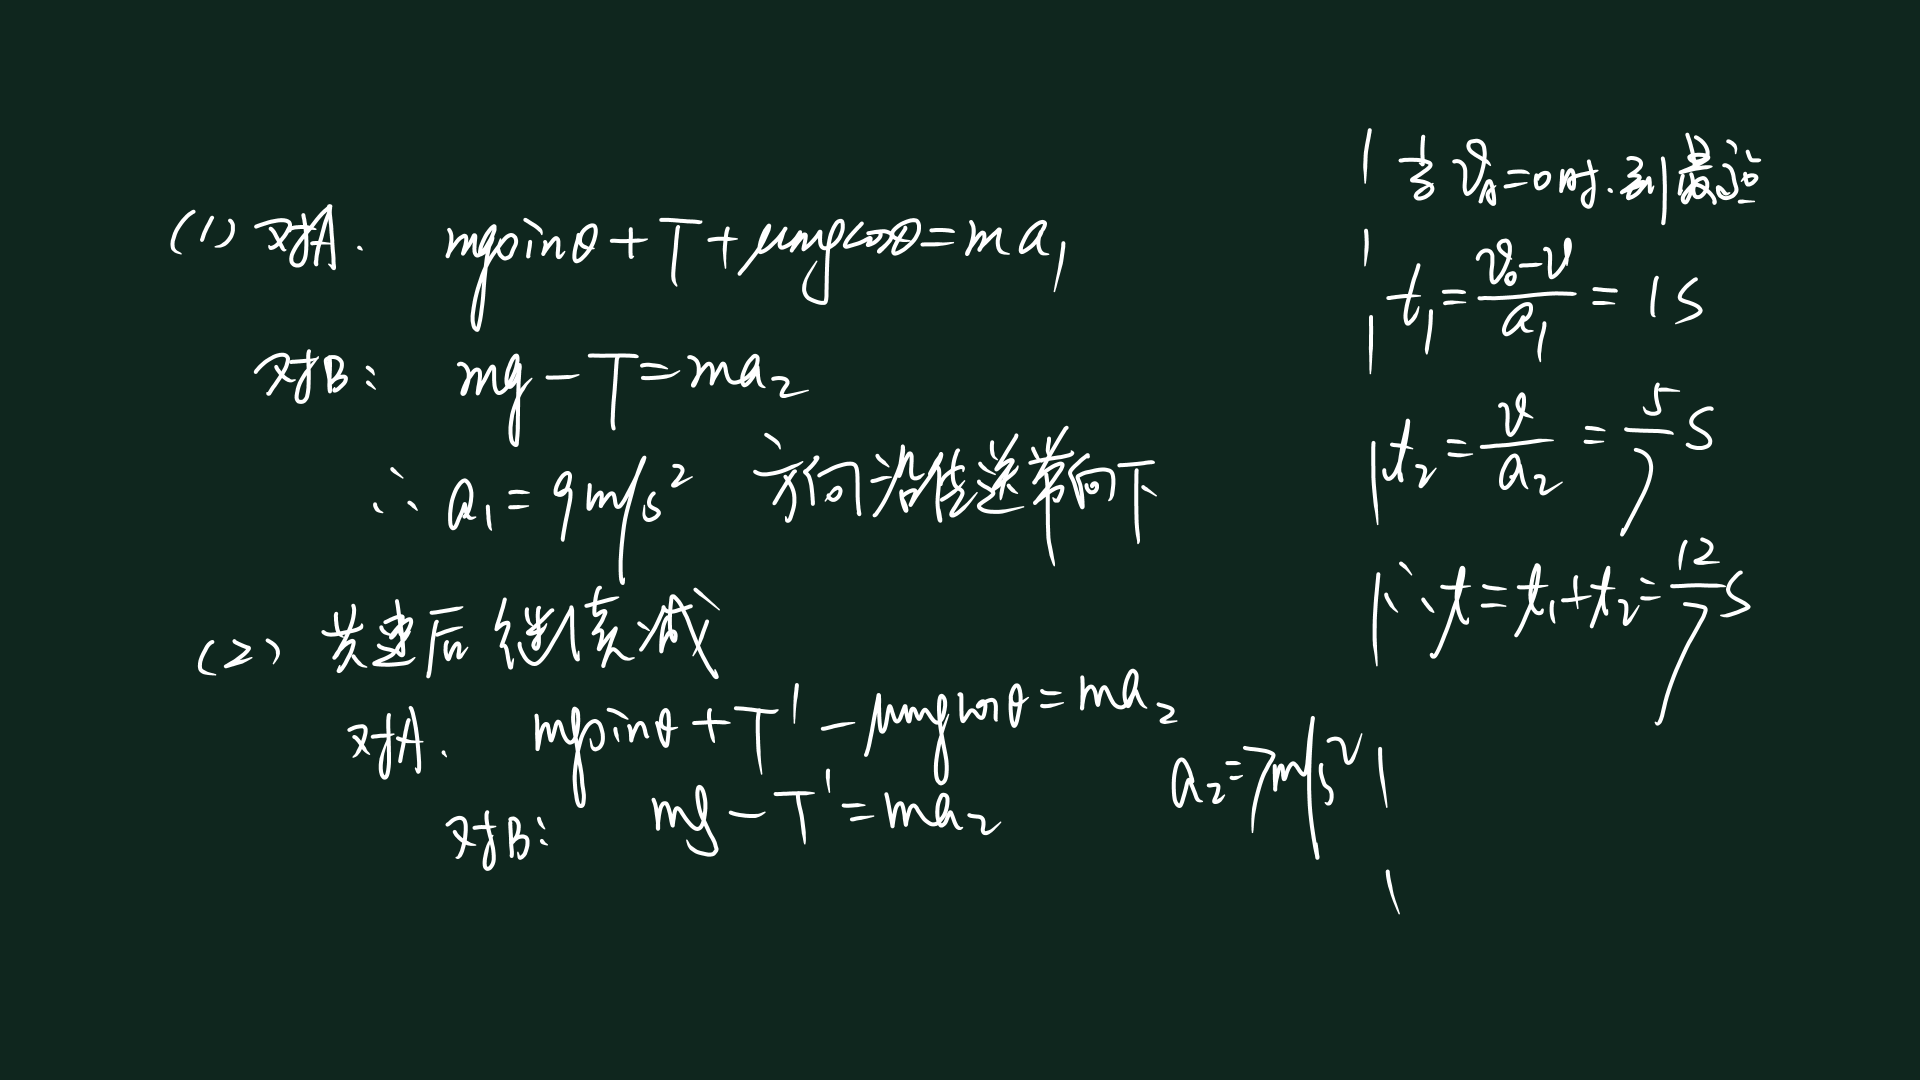 (1) 对A. mgsinθ+T+μmgcosθ=ma₁
对B: mg-T=ma₂
∴ a₁=9m/s² 方向沿传送带向下
(2) 共速后继续减
对A. mgsinθ+T'-μmgcosθ=ma₂
对B: mg-T'=ma₂
a₂=7m/s²
当v_A=0时.到最远
t₁=(v₀-v)/a₁=1s
t₂=v/a₂=5/7 s
∴t=t₁+t₂=12/7 s